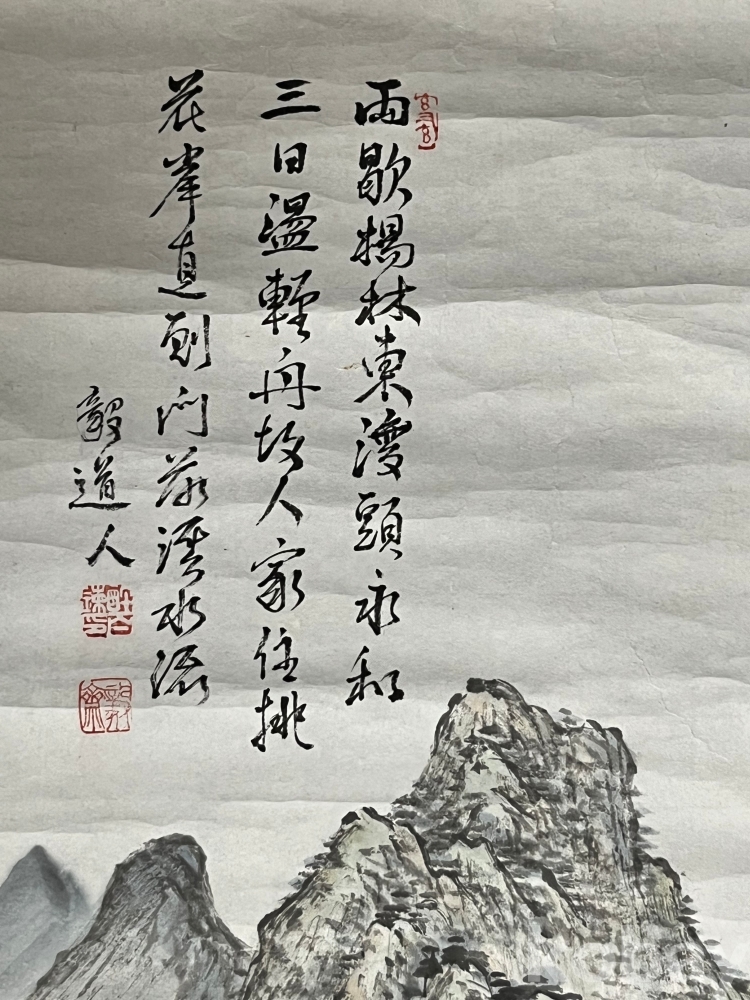 雨歇楊林東渡頭永和
三日盪輕舟故人家住桃
花岸直到門前溪水流
毅道人
許百鍊印
毅齋